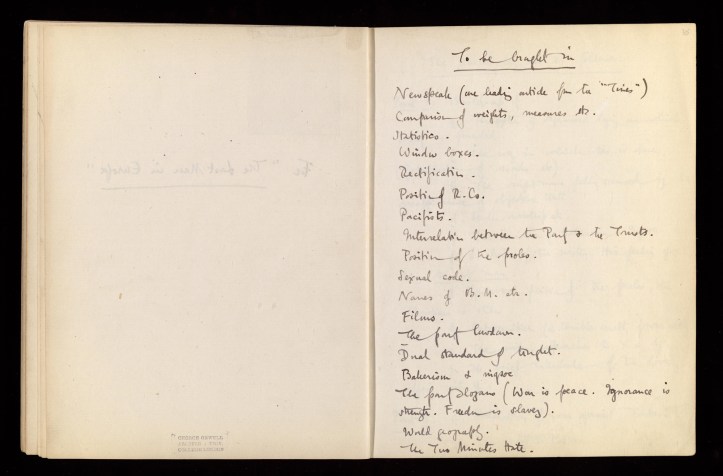 For "The Last Man in Europe"
To be brought in
Newspeak (one leading article from the "Times")
Comparison of weights, measures etc.
Statistics.
Window boxes.
Rectification.
Position of R.Cs.
Pacifists.
Interrelation between the Party & the Trusts.
Position of the proles.
Sexual code.
Names of B.M. etc.
Films.
The party lowdown.
Dual standard of thought.
Bakerism & ingsoc
The party slogans (War is peace. Ignorance is
strength. Freedom is slavery).
World geography.
The Two Minutes Hate.